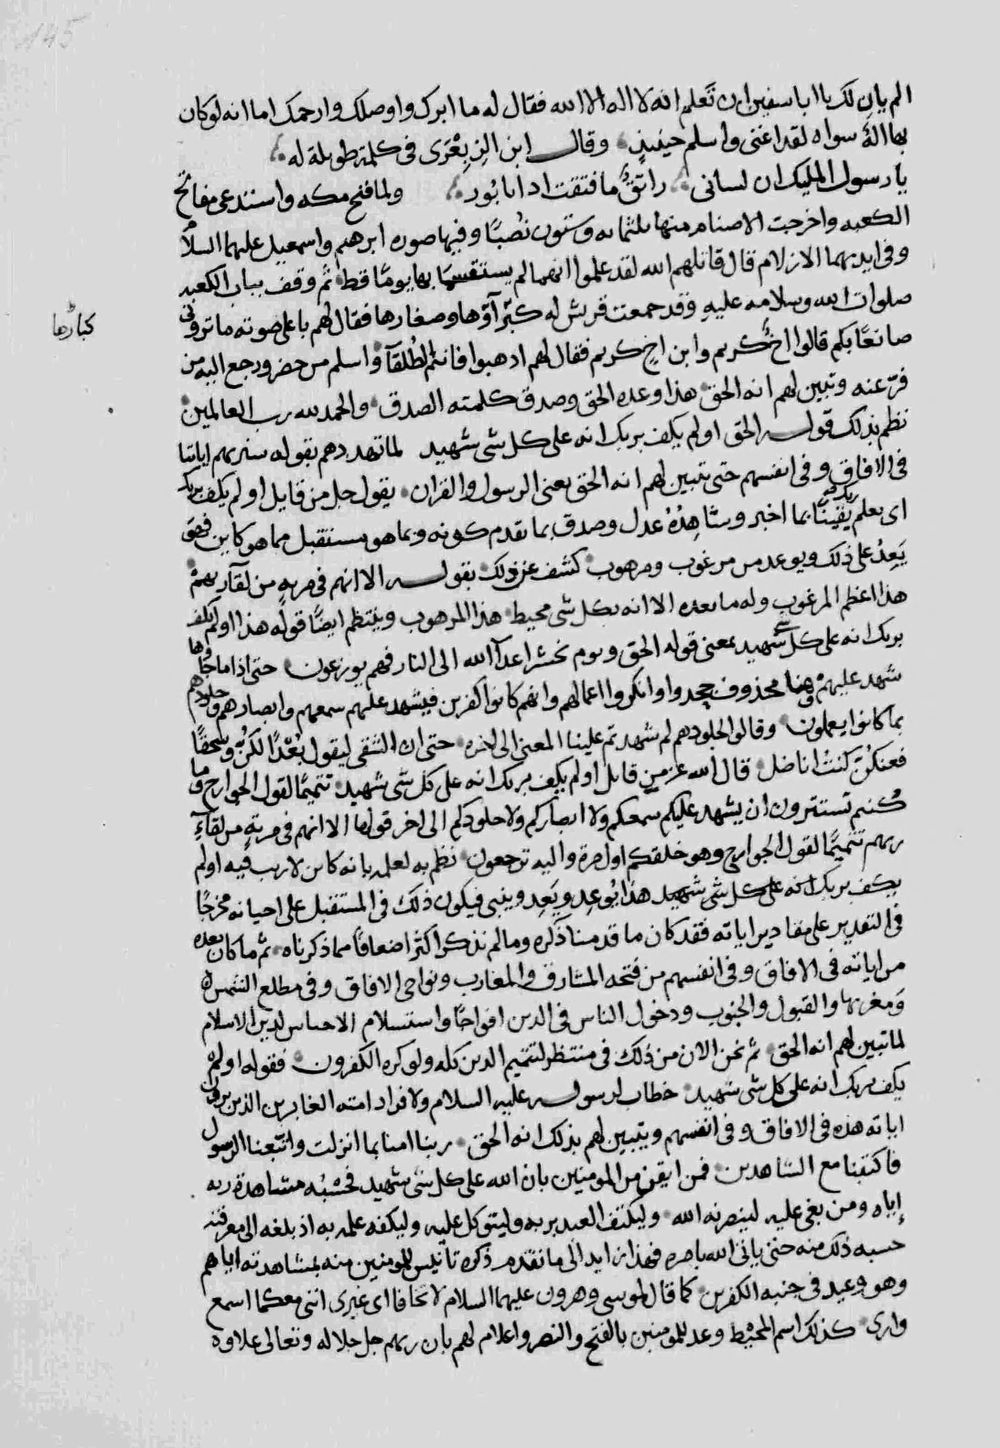 145
الم يان لك يا ابا سفين ان تعلم انه لا اله الا الله فقال له ما ابرك واوصلك وارحمك اما انه لو كان
بها اله سواه لقد اغنى واسلم حينئذ وقال ابن الزبعرى فى كلمة طويلة له
يا رسول المليك ان لسانى راتق ما فتقت اذ انا بور ولما فتح مكه واستدعى مفاتح
الكعبه واخرجت الاصنام منها ثلثمائه وستون نصبا وفيها صوره ابرهيم واسمعيل عليهما السلام
وفى ايديهما الازلام قال قاتلهم الله لقد علموا انهما لم يستقسما بها يوما قط ثم وقف بباب الكعبه
صلوات الله وسلامه عليه وقد جمعت قريش له كبراؤها وصغارها فقال لهم باعلى صوته ما ترونى
كبارها
صانعا بكم قالوا اخ كريم وابن اخ كريم فقال لهم اذهبوا فانتم الطلقآ واسلم من حضر ورجع اليه من
فر عنه وتبين لهم انه الحق هذا وعده الحق وصدق كلمته الصدق والحمد لله رب العالمين
نظم بذلك قوله الحق اولم يكف بربك انه على كل شى شهيد لما تهددهم بقوله سنريهم اياتنا
فى الافاق وفى انفسهم حتى يتبين لهم انه الحق يعنى الرسول والقران يقول جل من قايل اولم يكف بربك
اى بعلم ربك يقينا بما اخبر وشاهده عدل وصدق بما تقدم كونه وبما هو مستقبل مما هو كاين فهو
يعد على ذلك ويوعد من مرغوب ومرهوب كشف عن ذلك بقوله الا انهم فى مرية من لقآ ربهم
هذا اعظم المرغوب وله ما بعده الا انه بكل شى محيط هذا المرهوب وينتظم ايضا قوله هذا اولم يكف
بربك انه على كل شى شهيد بمعنى قوله الحق ويوم نحشر اعدآ الله الى النار فهم يوزعون حتى اذا ما جاوها
شهد عليهم وهنا محذوف جحدوا وانكروا اعمالهم وانهم كانوا كفرين فيشهد عليهم سمعهم وابصارهم وجلودهم
بما كانوا يعملون وقالوا لجلودهم لم شهدتم علينا المعنى الى اخره حتى ان الشقى ليقول بعدا لكن وسحقا
فعنكن كنت اناضل قال الله عز من قايل اولم يكف بربك انه على كل شى شهيد تتميما لقول الجوارح وما
كنتم تستترون ان يشهد عليكم سمعكم ولا ابصاركم ولا جلودكم الى اخر قولها الا انهم فى مرية من لقآء
ربهم تتميما لقول الجوارح وهو خلقكم اول مرة واليه ترجعون نظم به لعلمه بانه كاين لا ريب فيه اولم
يكف بربك انه على كل شى شهيد هذا يوعد ويعد وينبى فيكون ذلك فى المستقبل على احيانه مخرجا
فى التقدير على مقادير اياته فقد كان ما قدمنا ذكره وما لم نذكر اكثر اضعافا مما ذكرناه ثم ما كان بعده
من اياته فى الافاق وفى انفسهم من فتحه المشارق والمغارب ونواحى الافاق وفى مطلع الشمس
ومغربها والقبول والجنوب ودخول الناس فى الدين افواجا واستسلام الاحماس لدين الاسلام
لما تبين لهم انه الحق ثم نحن الان من ذلك فى منتظر لتتميم الدين كله ولو كره الكفرون فقوله اولم
يكف بربك انه على كل شى شهيد خطاب لرسوله عليه السلام ولافراد امته الغابرين الذين يرون
اياته هذه فى الافاق وفى انفسهم ويتبين لهم بذلك انه الحق ربنا امنا بما انزلت واتبعنا الرسول
فاكتبنا مع الشاهدين فمن ايقن من المومنين بان الله على كل شى شهيد فحسبه مشاهدة ربه
اياه ومن بغى عليه لينصرنه الله وليكتف العبد بربه وليتوكل عليه وليكفه علمه به اذ بلغه الى معرفته
حسبه ذلك منه حتى ياتى الله بامره فهذا زايد الى ما تقدم ذكره تانيس للمومنين منه بمشاهدته اياهم
وهو وعيد فى جنبه الكفرين كما قال لموسى وهرون عليهما السلام لا تخافا اى غيرى اننى معكما اسمع
وارى كذلك اسم المحيط وعد للمومنين بالفتح والنصر واعلام لهم بان ربهم جل جلاله وتعالى علاوه